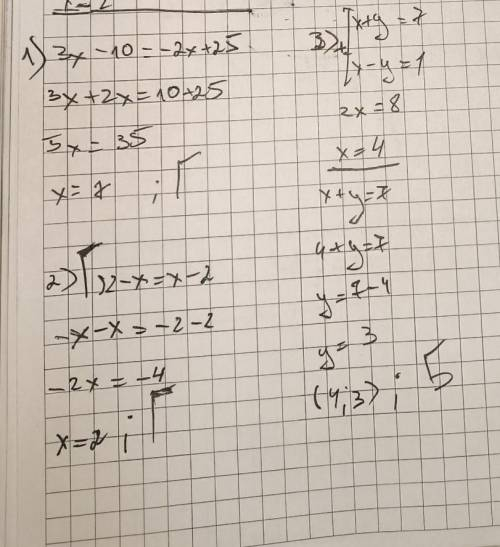 1) 3x - 10 = -2x + 25
3x + 2x = 10 + 25
5x = 35
x = 7 ; Г
2) Г) 2 - x = x - 2
-x - x = -2 - 2
-2x = -4
x = 2 ; Г
3) + [ x + y = 7
x - y = 1
2x = 8
x = 4
x + y = 7
4 + y = 7
y = 7 - 4
y = 3
(4; 3) ; Б